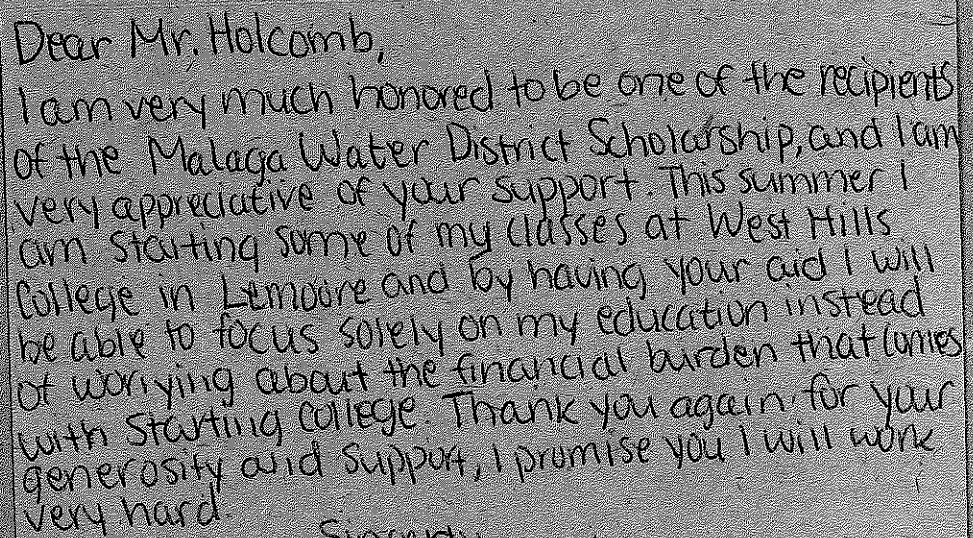 Dear Mr. Holcomb,
I am very much honored to be one of the recipients
of the Malaga Water District Scholarship, and I am
very appreciative of your support. This summer I
am starting some of my classes at West Hills
College in Lemoore and by having your aid I will
be able to focus solely on my education instead
of worrying about the financial burden that comes
with starting college. Thank you again for your
generosity and support, I promise you I will work
very hard.